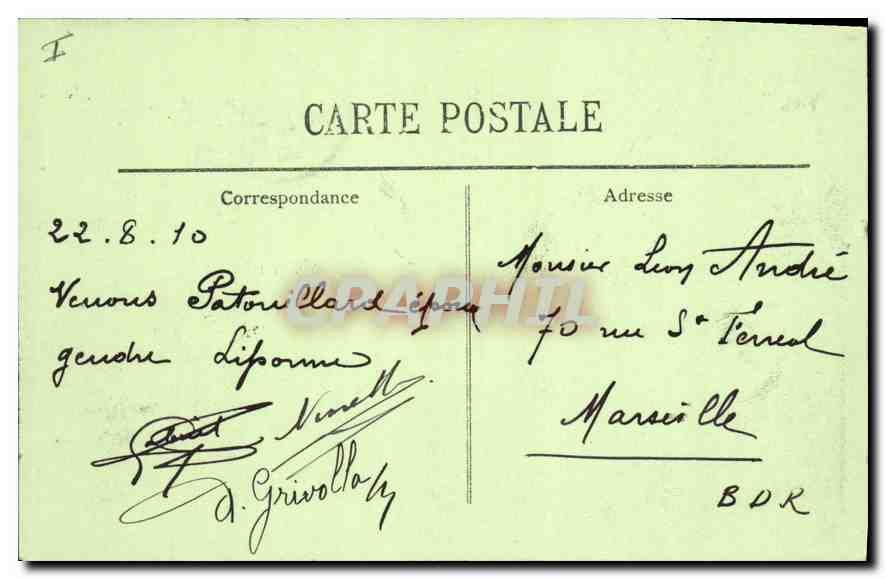 I
CARTE POSTALE
Correspondance
Adresse
22.8.10
Venons Patouillard époux
gendre Liponne
A. Grivolla
Monsieur Léon André
70 rue St Ferreol
Marseille
BDR
CPAPHIL